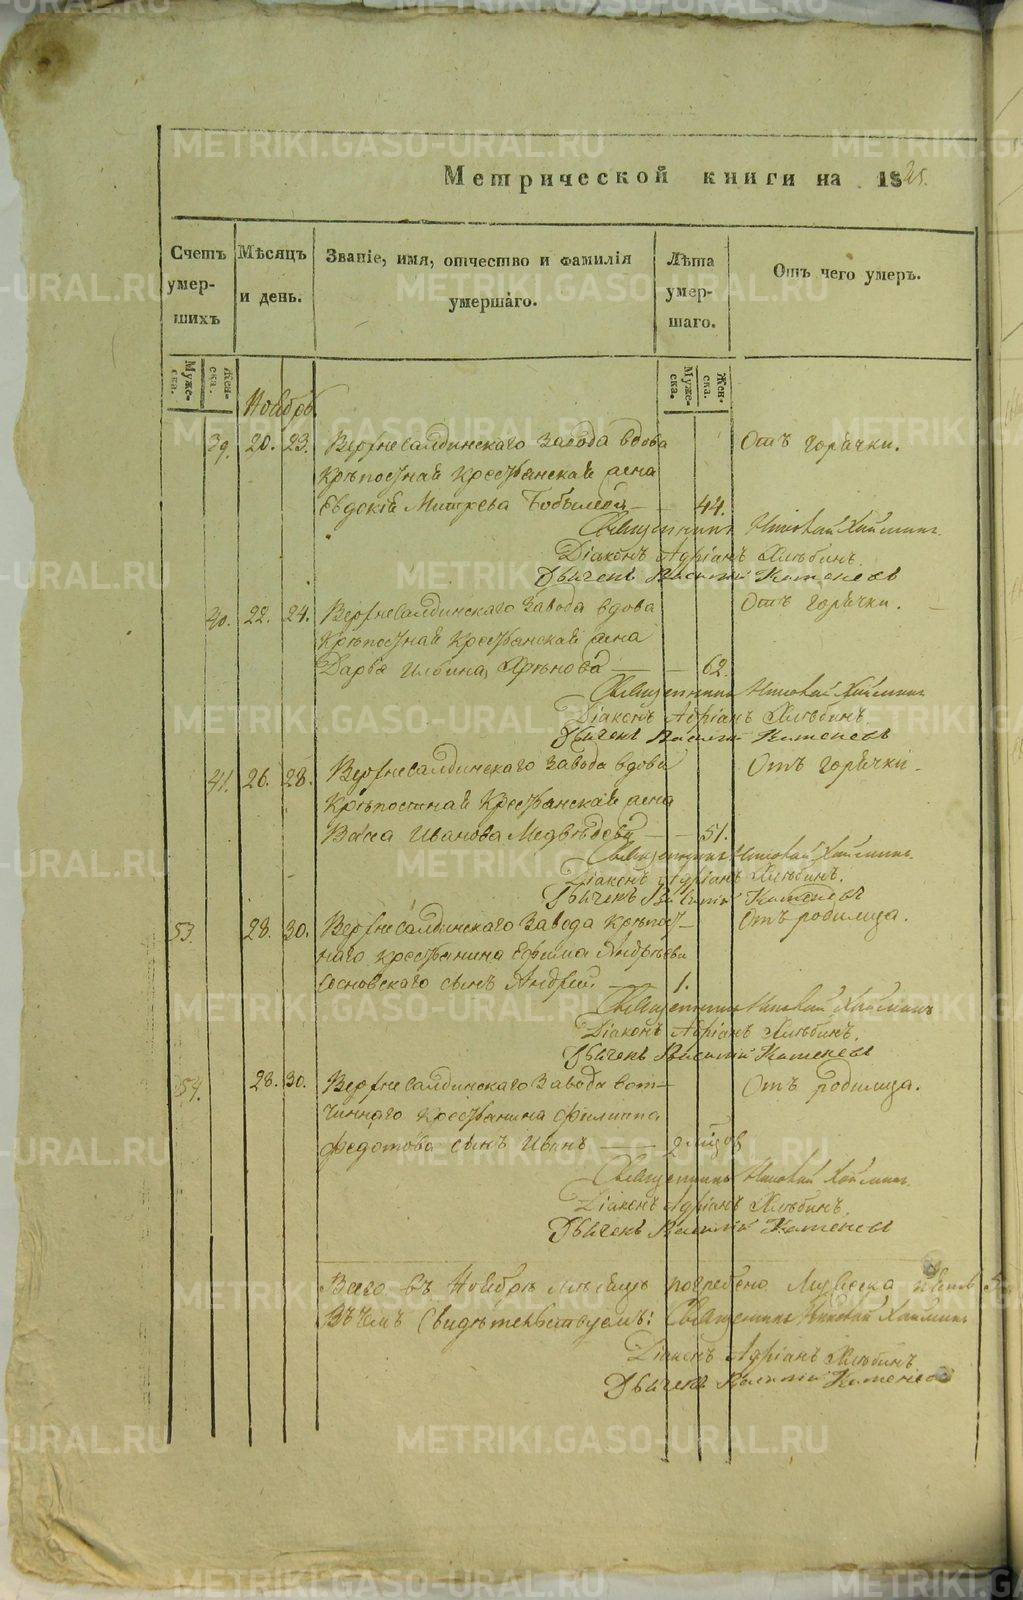 Метрической книги на 1825.
Счетъ умер- шихъ
Мѣсяцъ и день.
Званіе, имя, отчество и фамилія умершаго.
Лѣта умер- шаго.
Отъ чего умеръ.
Муже- ска.
Жен- ска.
Муже- ска.
Жен- ска.
Ноябрь
39. 20. 23. Верхнесалдинскаго Завода вдова Отъ горячки.
крѣпостная крестьянская жена
Евдокія 44.
Священникъ
Діаконъ Адріанъ Хлѣбинъ.
Дьячекъ Василій Каменевъ
40. 22. 24. Верхнесалдинскаго Завода вдова Отъ горячки.
крѣпостная крестьянская жена
Дарья Ильина 62.
Священникъ
Діаконъ Адріанъ Хлѣбинъ.
Дьячекъ Василій Каменевъ
41. 26. 28. Верхнесалдинскаго Завода вдова Отъ горячки.
крѣпостная крестьянская жена
Васса Иванова Медвѣдева 51.
Священникъ
Діаконъ Адріанъ Хлѣбинъ.
Дьячекъ Василій Каменевъ
53. 28. 30. Верхнесалдинскаго Завода крѣпост- Отъ родимца.
наго крестьянина Ефима Андрѣева
Сосновскаго сынъ Андрей 1.
Священникъ
Діаконъ Адріанъ Хлѣбинъ.
Дьячекъ Василій Каменевъ
54. 28. 30. Верхнесалдинскаго Завода вот- Отъ родимца.
чиннаго крестьянина Филиппа
Федотова сынъ Иванъ 2 мѣсяцов
Священникъ
Діаконъ Адріанъ Хлѣбинъ.
Дьячекъ Василій Каменевъ
Всего въ Ноябрѣ мѣсяцѣ погребено Мужеска
Въ чемъ свидѣтельствуемъ: Священникъ
Діаконъ Адріанъ Хлѣбинъ
Дьячекъ Василій Каменевъ
METRIKI.GASO-URAL.RU